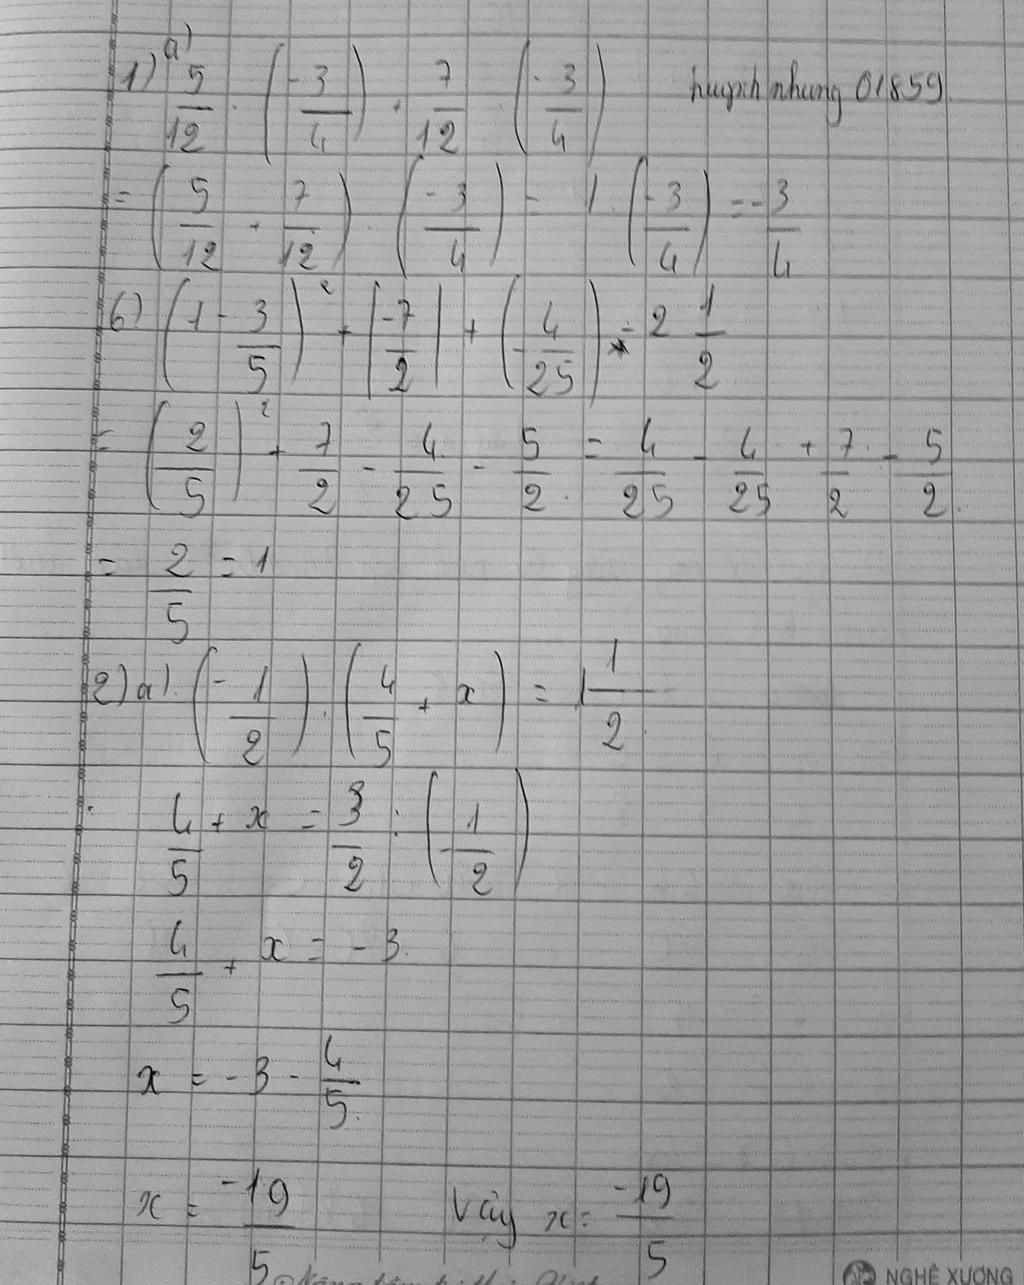 a)
1) 5/12 . (-3/4) + 7/12 . (-3/4) huynh nhung 01859
= (5/12 + 7/12) . (-3/4) = 1. (-3/4) = -3/4
b) (1 - 3/5)² + |-7/2| + (-4/25) - 2 1/2
= (2/5)² + 7/2 - 4/25 - 5/2 = 4/25 - 4/25 + 7/2 - 5/2
= 2/5 = 1
2) a) (-1/2) . (4/5 + x) = 1 1/2
4/5 + x = 3/2 : (-1/2)
4/5 + x = -3
x = -3 - 4/5
x = -19/5 Vậy x = -19/5
NGHÊ XƯƠNG